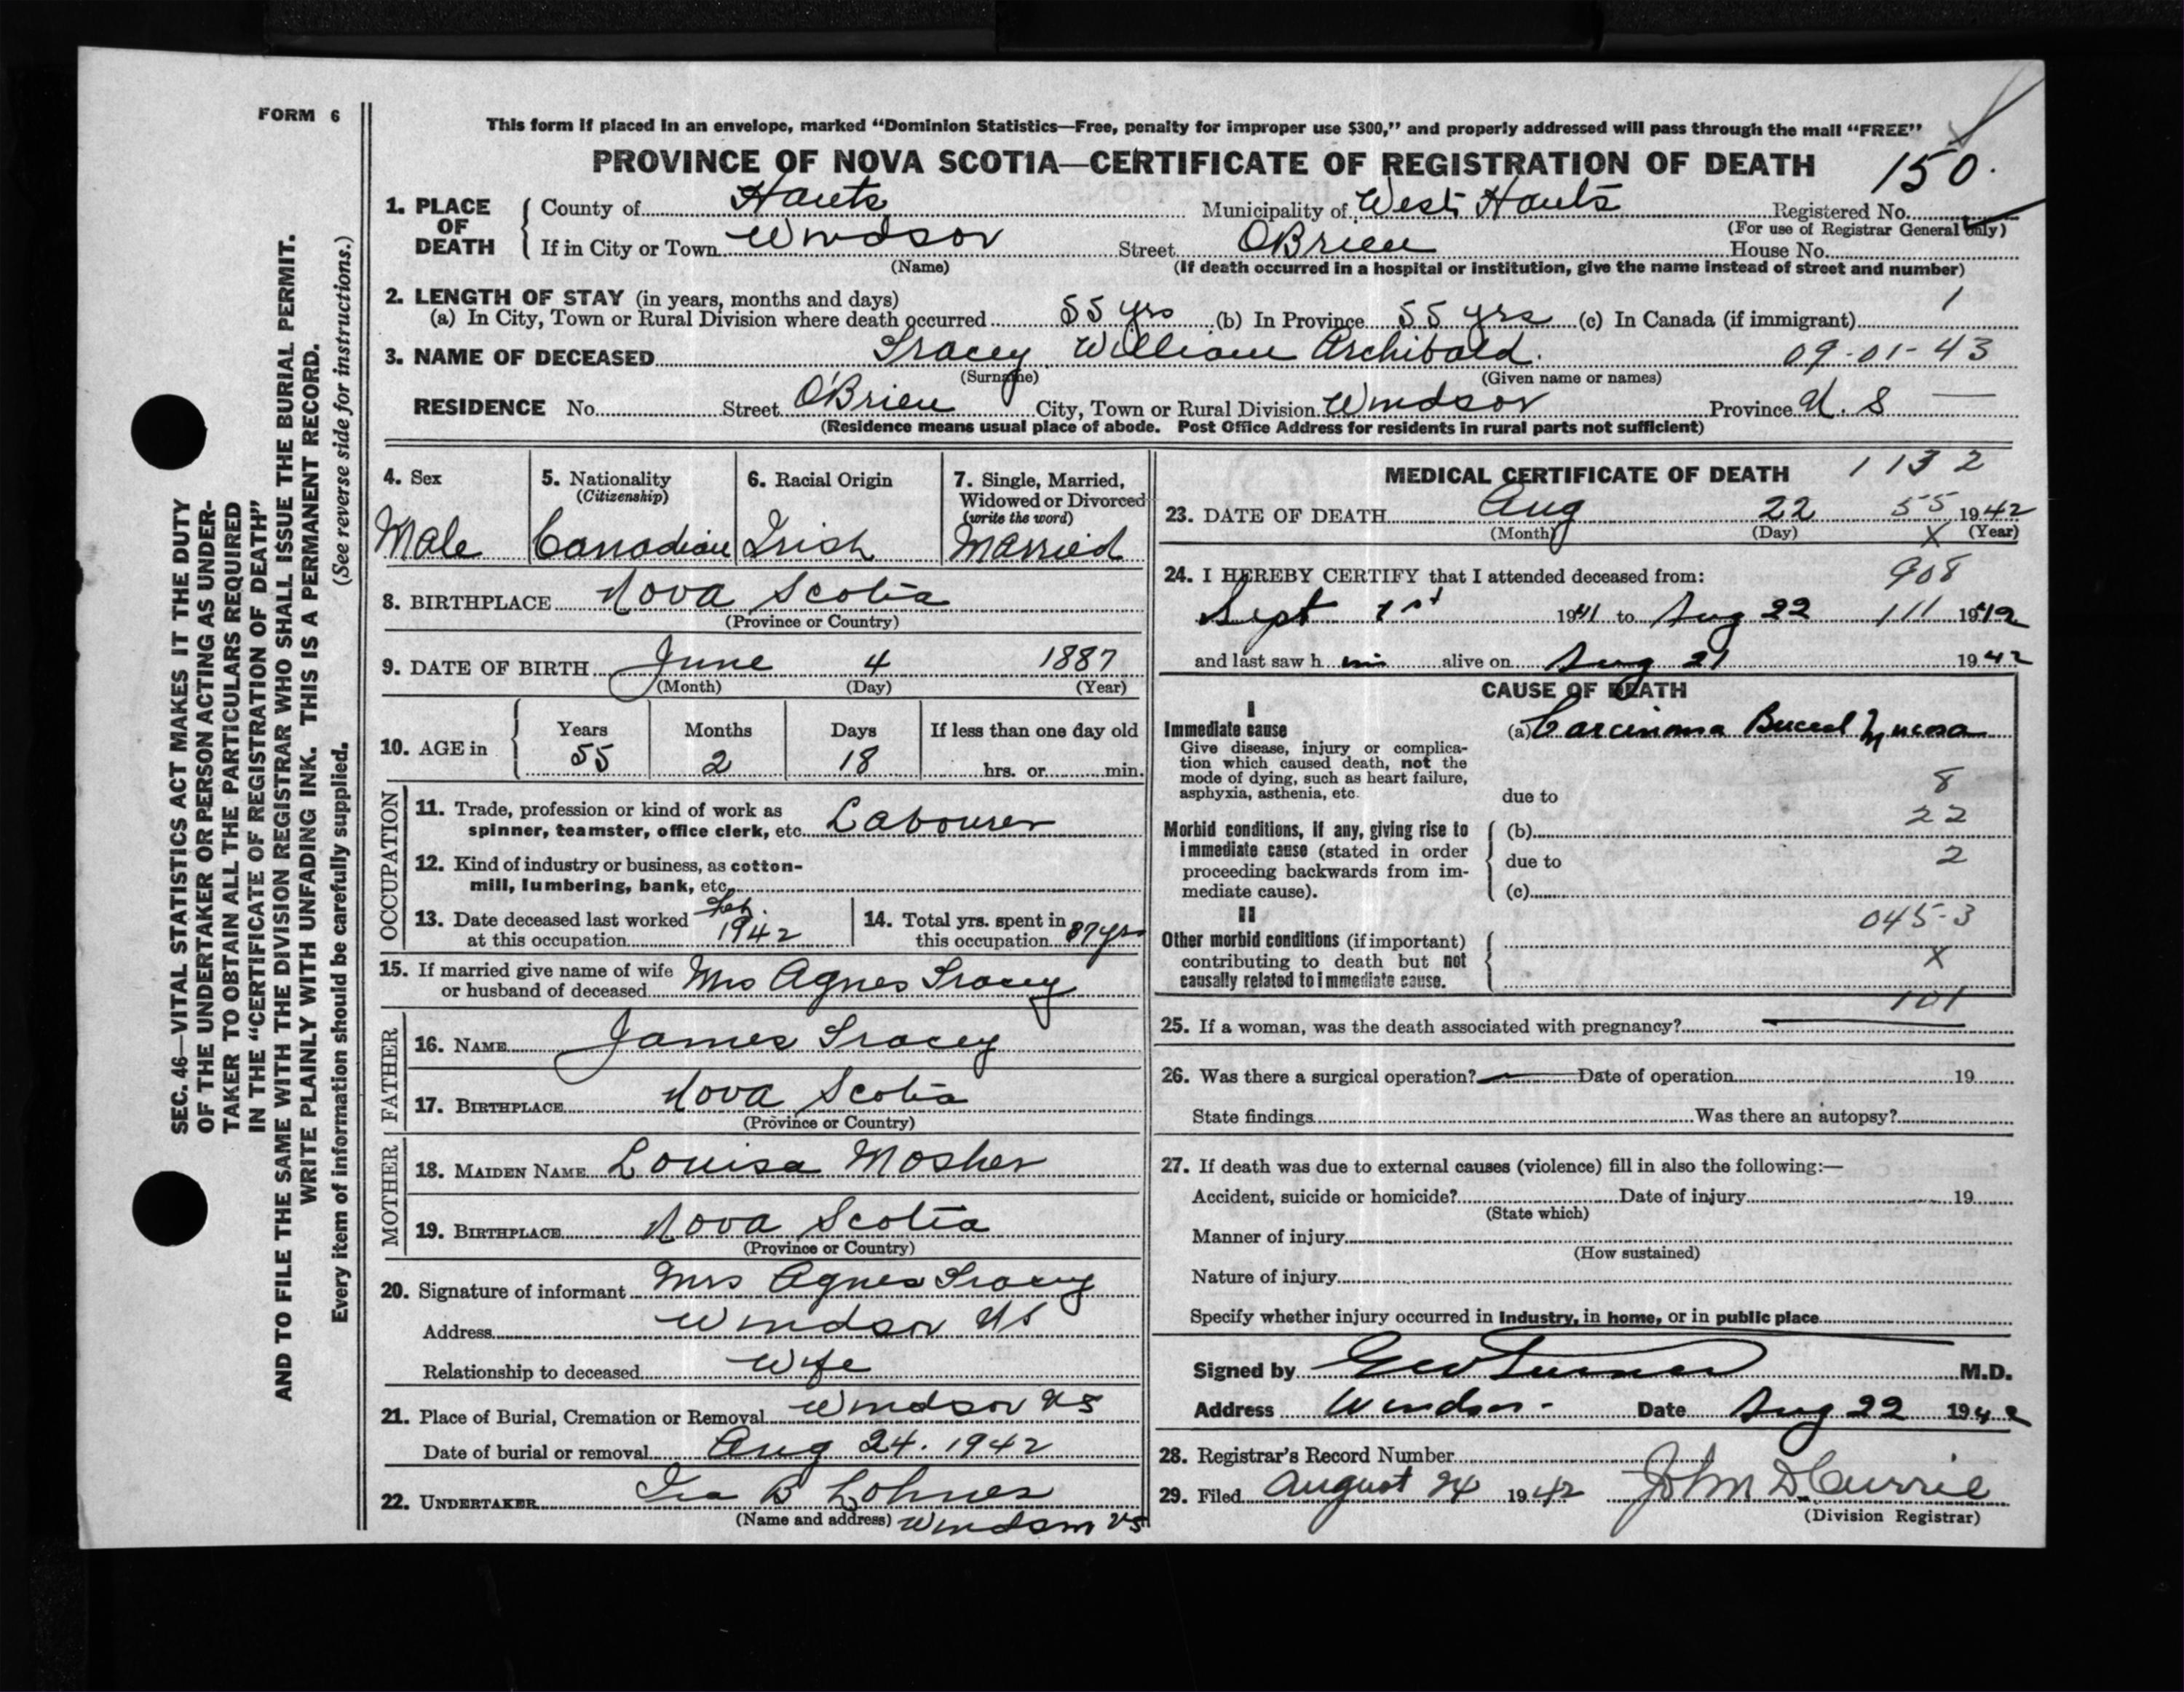 FORM 6
This form if placed in an envelope, marked “Dominion Statistics—Free, penalty for improper use $300,” and properly addressed will pass through the mail “FREE”
PROVINCE OF NOVA SCOTIA—CERTIFICATE OF REGISTRATION OF DEATH 150.
1. PLACE OF DEATH County of Hants Municipality of West Hants Registered No.
(For use of Registrar General only)
If in City or Town Windsor Street O'Brien House No.
(Name) (If death occurred in a hospital or institution, give the name instead of street and number)
2. LENGTH OF STAY (in years, months and days) 1
(a) In City, Town or Rural Division where death occurred 55 yrs (b) In Province 55 yrs (c) In Canada (if immigrant)
3. NAME OF DECEASED Tracey William Archibald. 09-01-43
(Surname) (Given name or names)
RESIDENCE No. Street O'Brien City, Town or Rural Division Windsor Province N. S
(Residence means usual place of abode. Post Office Address for residents in rural parts not sufficient)
4. Sex
Male
5. Nationality
(Citizenship)
Canadian
6. Racial Origin
Irish
7. Single, Married, Widowed or Divorced
(write the word)
Married
8. BIRTHPLACE Nova Scotia
(Province or Country)
9. DATE OF BIRTH June 4 1887
(Month) (Day) (Year)
10. AGE in Years Months Days If less than one day old
55 2 18 hrs. or min.
OCCUPATION
11. Trade, profession or kind of work as
spinner, teamster, office clerk, etc. Labourer
12. Kind of industry or business, as cotton-
mill, lumbering, bank, etc.
13. Date deceased last worked Feb.
at this occupation 1942
14. Total yrs. spent in
this occupation 37 yrs
15. If married give name of wife
or husband of deceased Mrs Agnes Tracey
FATHER
16. NAME James Tracey
17. BIRTHPLACE Nova Scotia
(Province or Country)
MOTHER
18. MAIDEN NAME Louisa Mosher
19. BIRTHPLACE Nova Scotia
(Province or Country)
20. Signature of informant Mrs Agnes Tracey
Address Windsor NS
Relationship to deceased Wife
21. Place of Burial, Cremation or Removal Windsor NS
Date of burial or removal Aug 24. 1942
22. UNDERTAKER Ira B Lohnes
(Name and address) Windsor NS
MEDICAL CERTIFICATE OF DEATH 1132
23. DATE OF DEATH Aug 22 55 1942
(Month) (Day) X (Year)
24. I HEREBY CERTIFY that I attended deceased from: 908
Sept 1st 1941 to Aug 22 111 1942
and last saw h im alive on Aug 21 1942
CAUSE OF DEATH
I
Immediate cause (a) Carcinoma Buccal Mucosa
Give disease, injury or complica-
tion which caused death, not the
mode of dying, such as heart failure,
asphyxia, asthenia, etc.
due to 8
22
Morbid conditions, if any, giving rise to (b)
immediate cause (stated in order due to 2
proceeding backwards from im-
mediate cause). (c)
II 045-3
Other morbid conditions (if important)
contributing to death but not X
causally related to immediate cause.
101
25. If a woman, was the death associated with pregnancy?
26. Was there a surgical operation? Date of operation 19
State findings Was there an autopsy?
27. If death was due to external causes (violence) fill in also the following:—
Accident, suicide or homicide? Date of injury 19
(State which)
Manner of injury
(How sustained)
Nature of injury
Specify whether injury occurred in Industry, in home, or in public place
Signed by Geo Turner M.D.
Address Windsor. Date Aug 22 1942
28. Registrar's Record Number
29. Filed August 24 1942 John D Currie
(Division Registrar)
SEC. 46—VITAL STATISTICS ACT MAKES IT THE DUTY
OF THE UNDERTAKER OR PERSON ACTING AS UNDER-
TAKER TO OBTAIN ALL THE PARTICULARS REQUIRED
IN THE “CERTIFICATE OF REGISTRATION OF DEATH”
AND TO FILE THE SAME WITH THE DIVISION REGISTRAR WHO SHALL ISSUE THE BURIAL PERMIT.
WRITE PLAINLY WITH UNFADING INK. THIS IS A PERMANENT RECORD.
Every item of information should be carefully supplied. (See reverse side for instructions.)